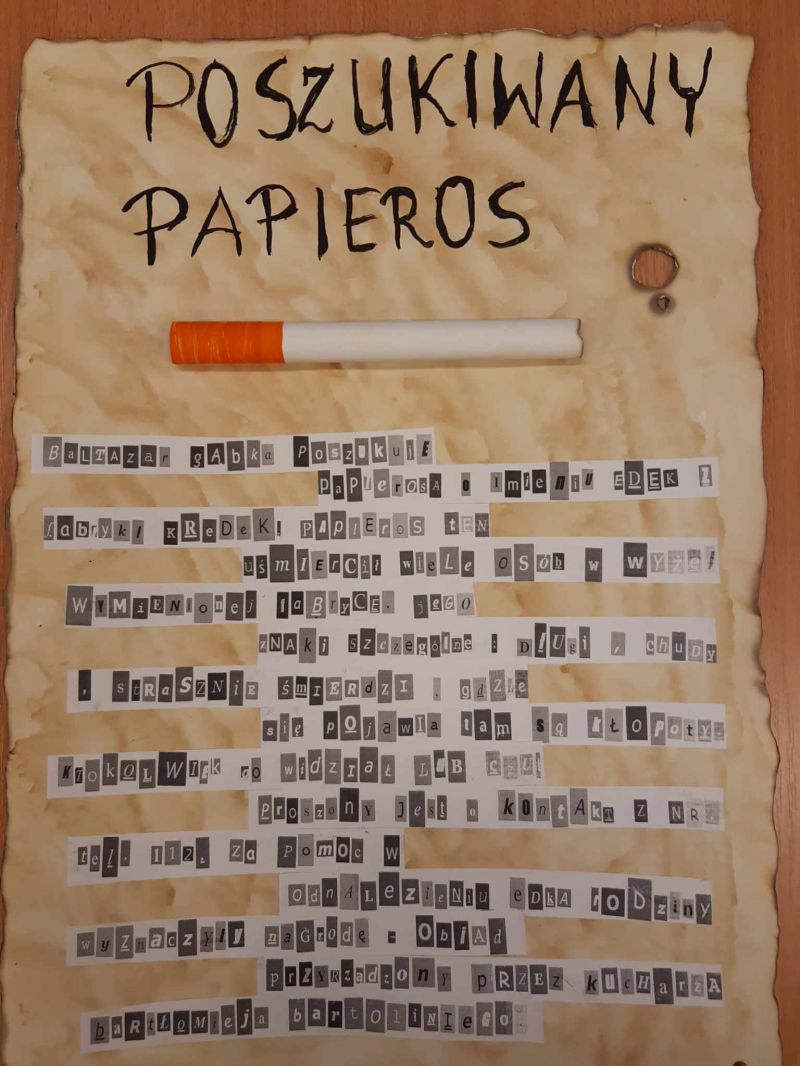 POSZUKIWANY
PAPIEROS
BaLTAZar gAbka PoszukujE
paPIerOsA o ImieniU EDEK Z
fabrykI KReDeK! PAPIEros tEN
uśMIErCił wieLe OSÓb w WYżeJ
WYMiENIonej faBryCE. jeGO
zNAKi szczególne : DŁUgi , chuDy
, stRaSZNIE śmIERdZI . gdZie
się pOjawIa tam są kŁOpoty.
KtokOLWIEk go widzIał LUB czuł
proszoNY Jest o kOntAKT Z NR
tel. 112. za PomOc W
OdnALeziENiU eDKA roDziny
wyZnaczyły naGrodę - ObiAd
przyRządzONy pRZEZ kucHarzA
baRtŁOMieja bartolINIEGO.